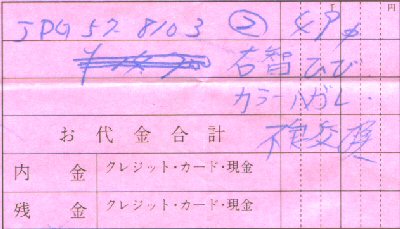 円
JPG 57 8103 ② 49
右智ひび
カラーハガレ.
不良交換
お代金合計
内金 クレジット・カード・現金
残金 クレジット・カード・現金